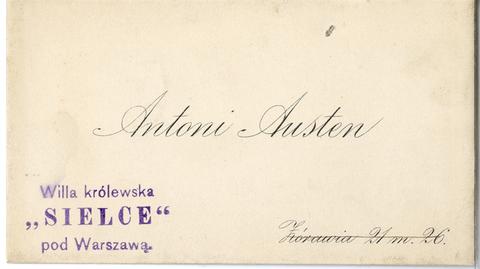 Antoni Austen
Willa królewska
„SIELCE“
pod Warszawą.
Żórawia 21 m. 26.